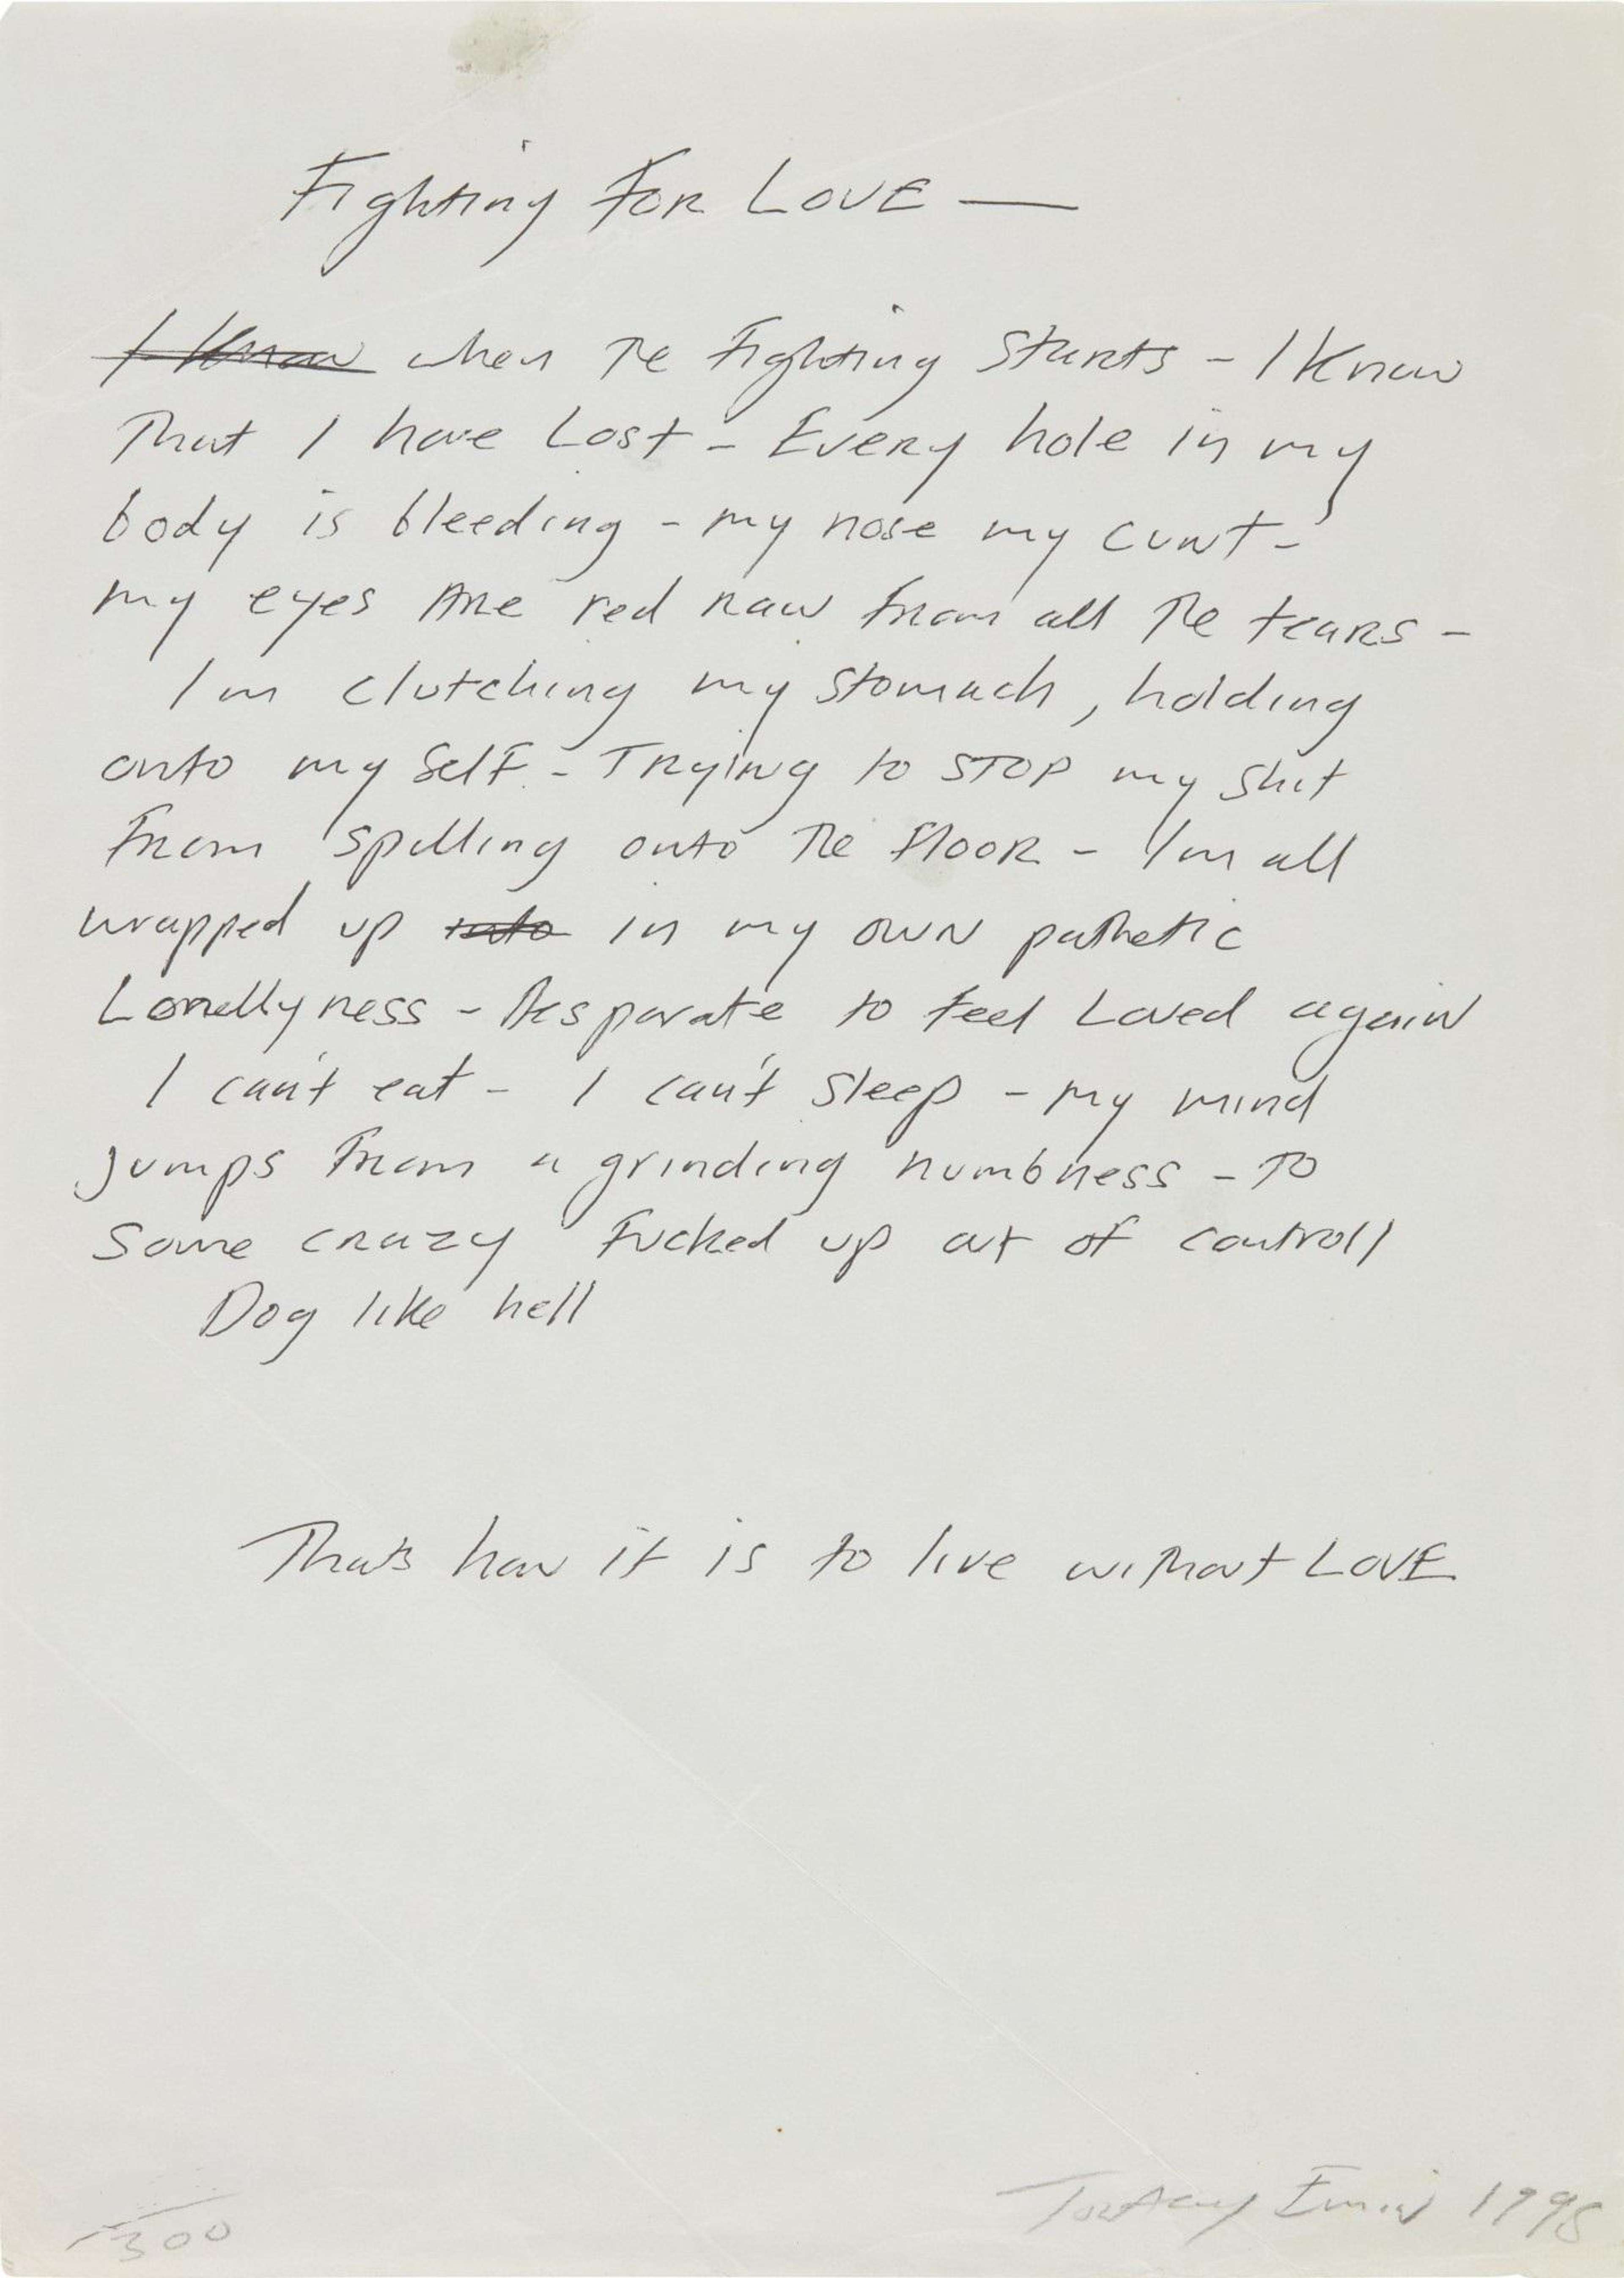 Fighting FOR LOVE —
I Know when The Fighting Starts - I Know
That I have Lost - Every hole in my
body is bleeding - my nose my cunt -
my eyes Are red raw from all The tears -
Im clutching my stomach, holding
onto my self - Trying to STOP my shit
From spilling onto The Floor - I'm all
wrapped up into in my own pathetic
Lonellyness - Desparate to feel Loved again
I can't eat - I can't sleep - my mind
jumps from a grinding numbness - To
some crazy Fucked up out of controll
Dog like hell
Thats how it is to live without LOVE
300
Tracey Emin 1998